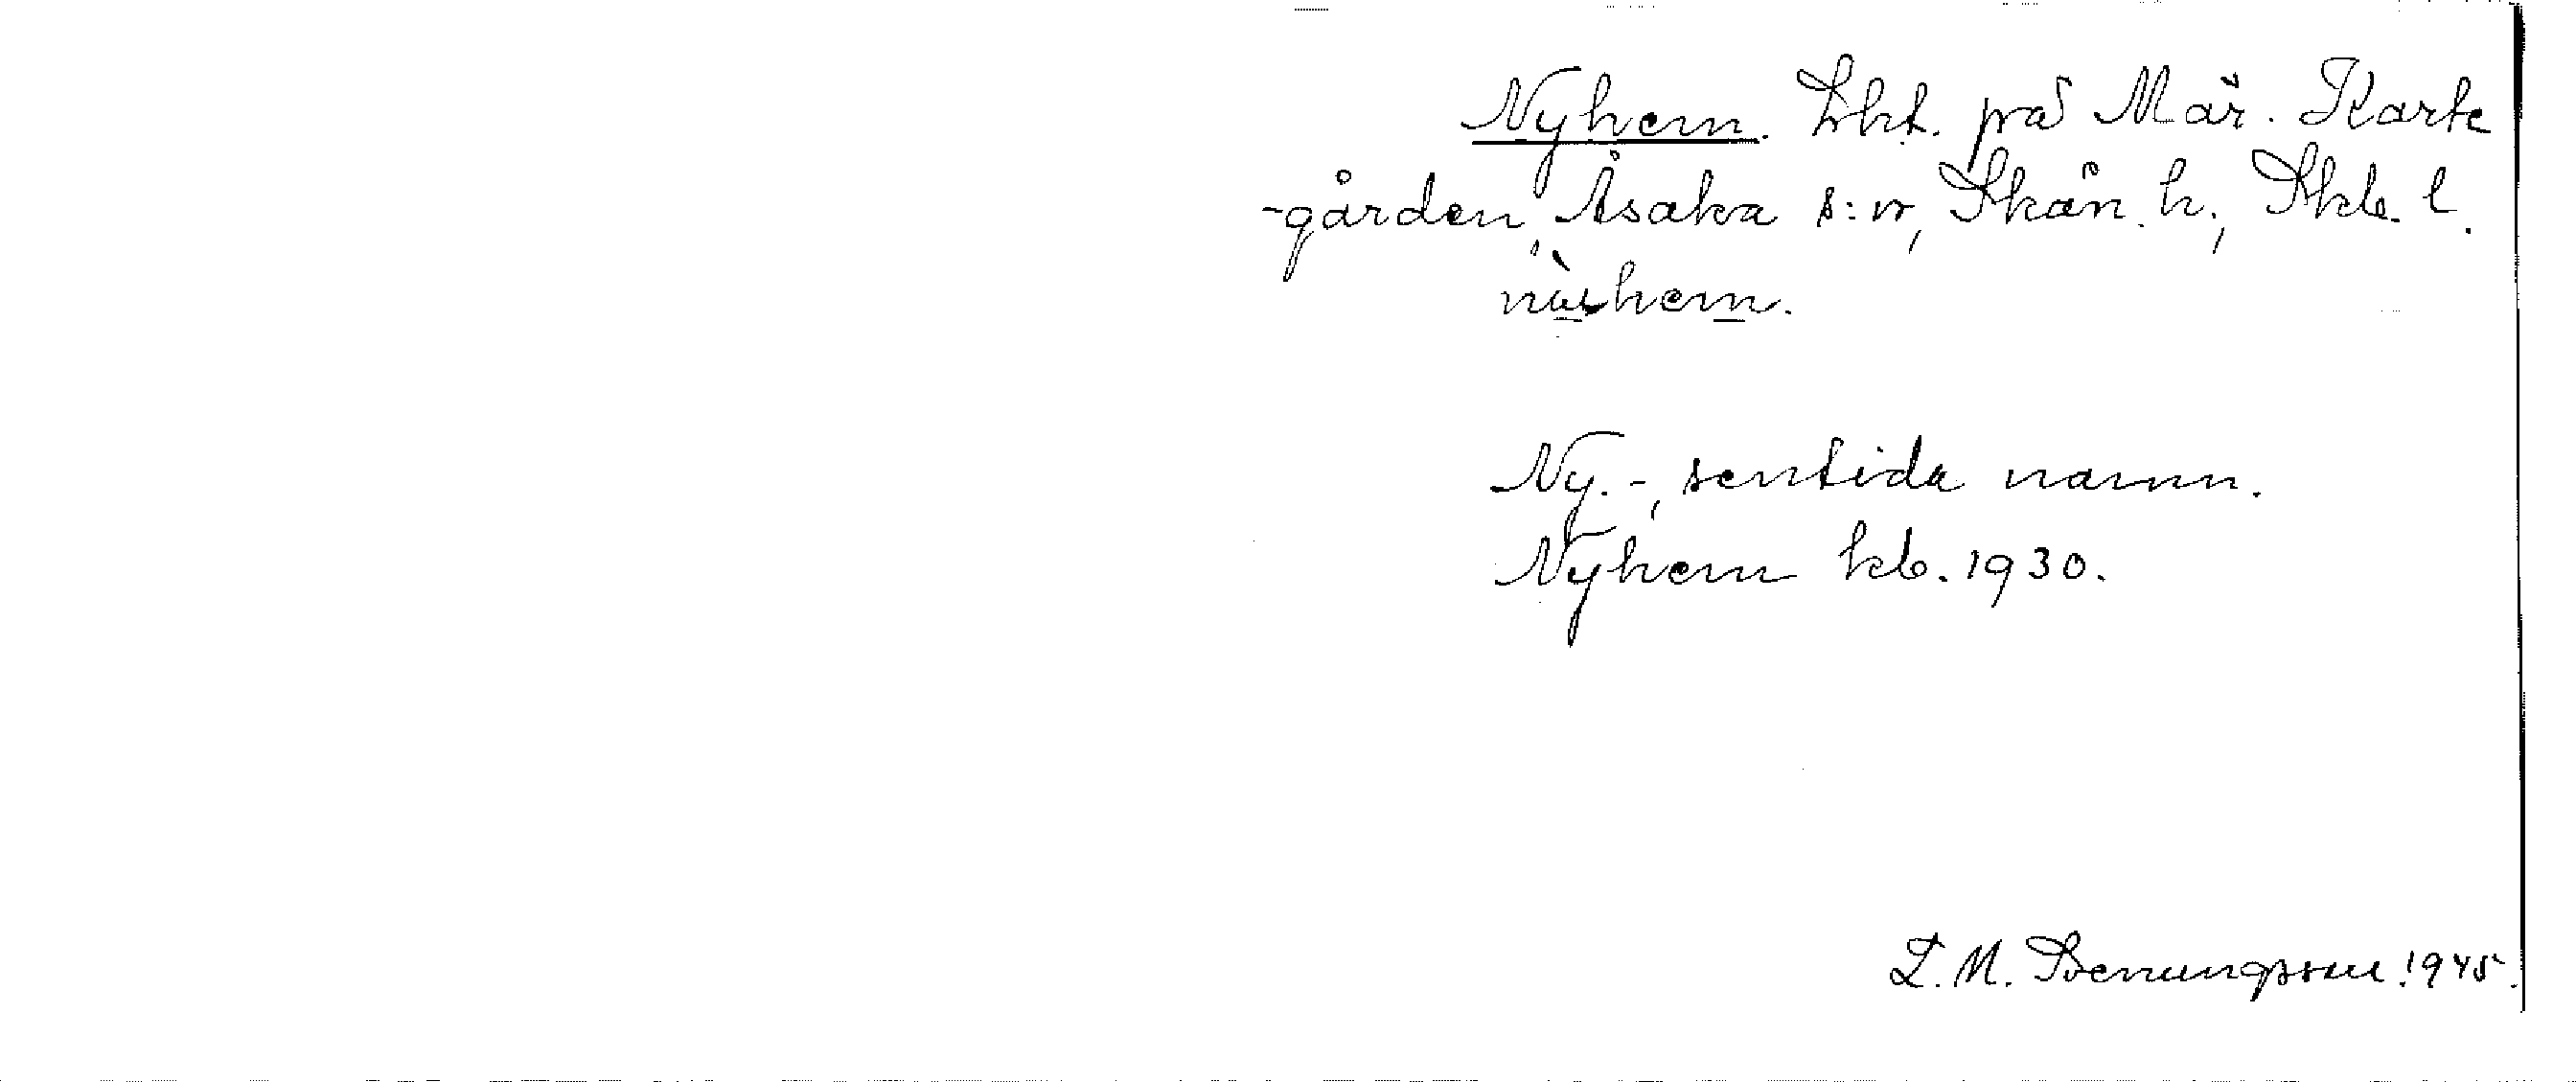 Nyhem. Lht. på Mär. Karte
-gården, Åsaka s:n, Skån. h., Skb. l.
Ny.-, sentida namn.
Nyhem kb. 1930.
L. M. Svenungsson. 1945.